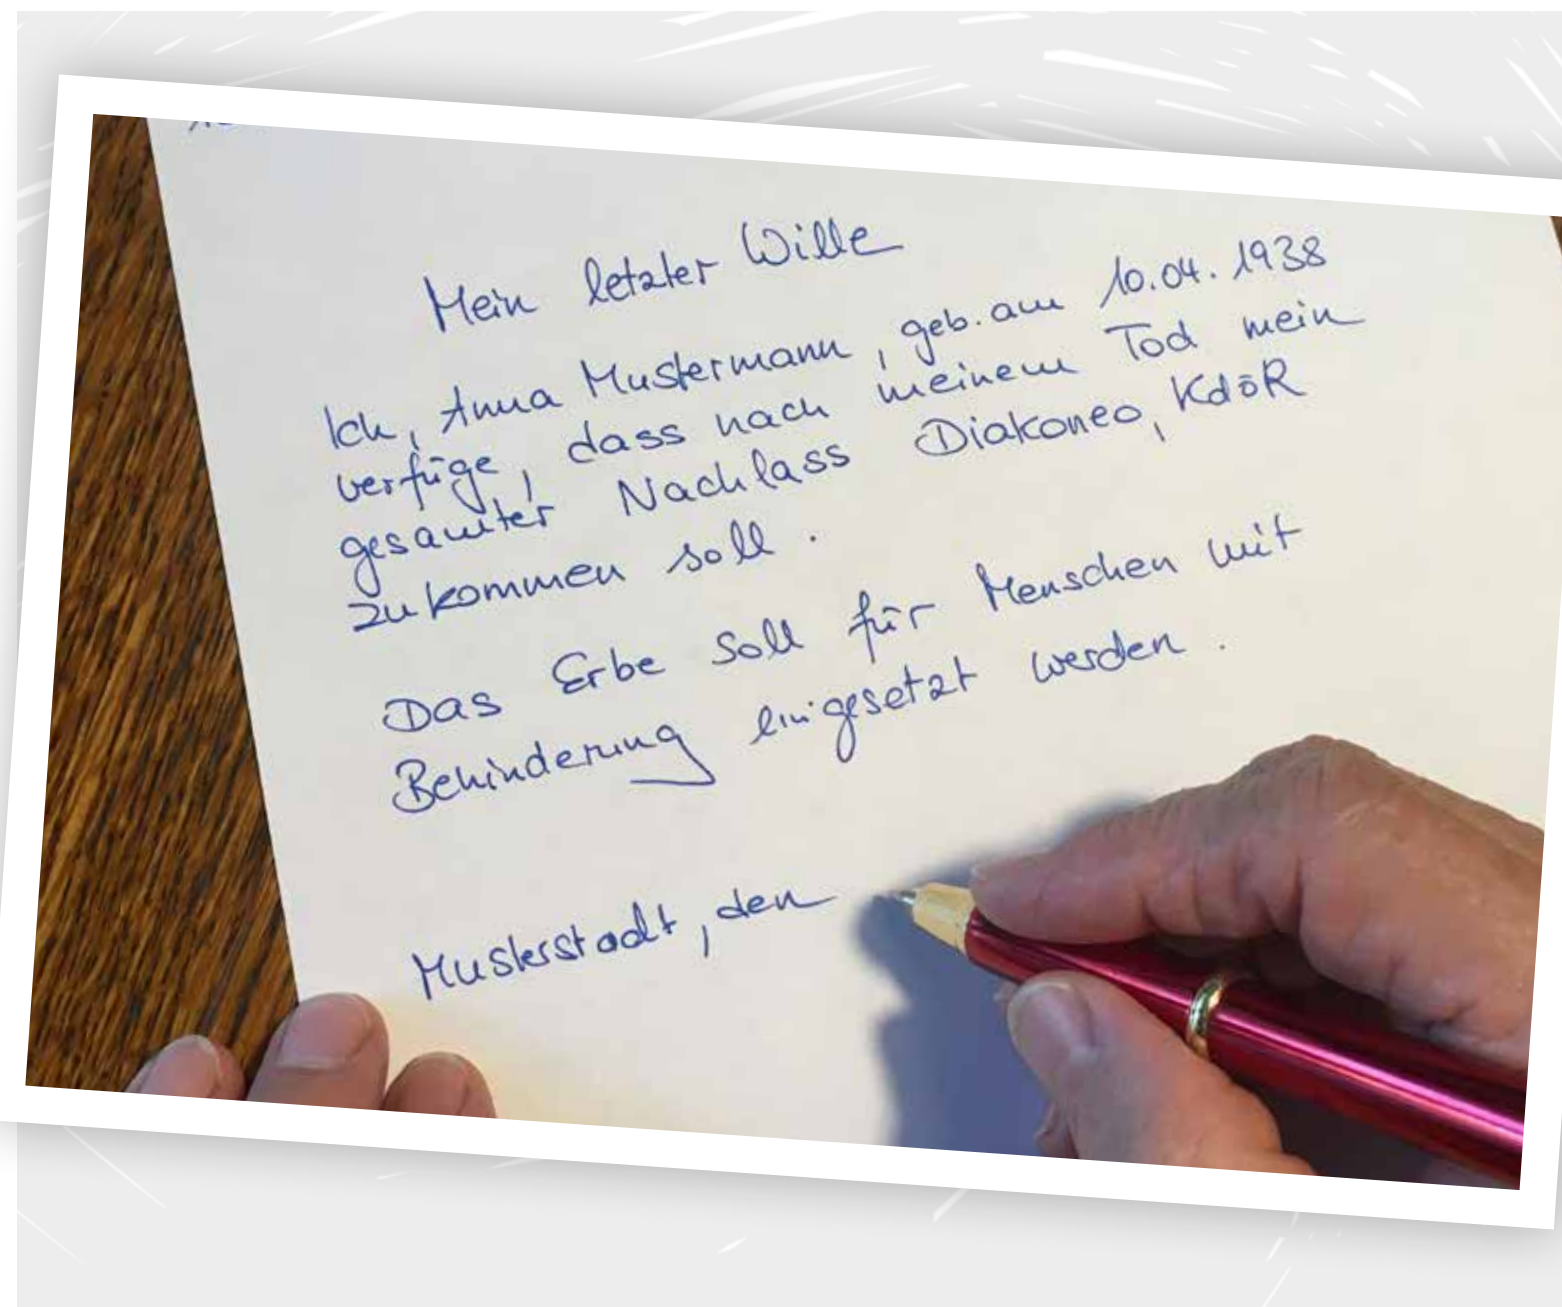 Mein letzter Wille
Ich, Anna Mustermann, geb. am 10.04.1938
verfüge, dass nach meinem Tod mein
gesamter Nachlass Diakoneo, KdöR
zukommen soll.
Das Erbe soll für Menschen mit
Behinderung eingesetzt werden.
Musterstadt, den